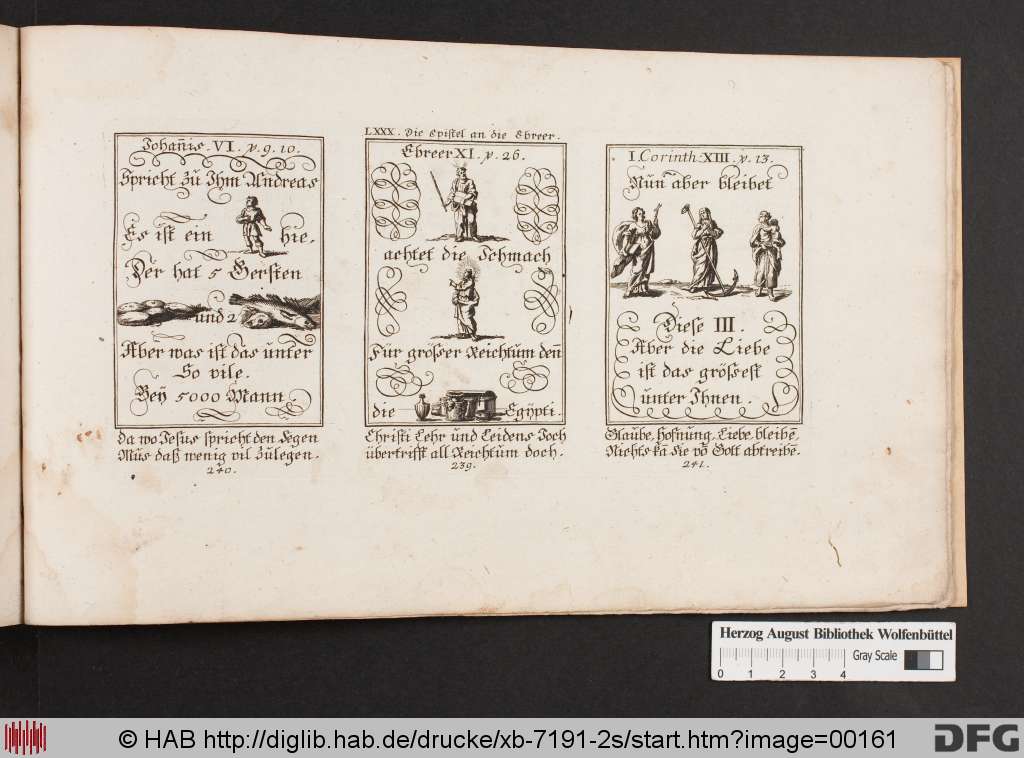 Johañis. VI. v. 9. 10.
Spricht zu Ihm Andreas
Es ist ein hie.
Der hat 5 Gersten
und 2
Aber was ist das unter
So vile.
Bey 5000 Mann.
da wo Jesus spricht den Segen
Mus daß wenig vil zulegen.
240.
LXXX. Die Epistel an die Ebreer.
Ebreer XI. v. 26.
achtet die Schmach
Für grösser Reichtum deñ
die Egÿpti.
Christi Lehr und Leidens Joch
übertrifft all Reichtum doch.
239.
I. Corinth: XIII. v. 13.
Nun aber bleibet
Diese III.
Aber die Liebe
ist das grössest
unter Ihnen.
Glaube, Hofnung, Liebe, bleibē,
Nichts kā sie vō Gott abtreibē.
241.
Herzog August Bibliothek Wolfenbüttel
Gray Scale
0 1 2 3 4
© HAB http://diglib.hab.de/drucke/xb-7191-2s/start.htm?image=00161
DFG